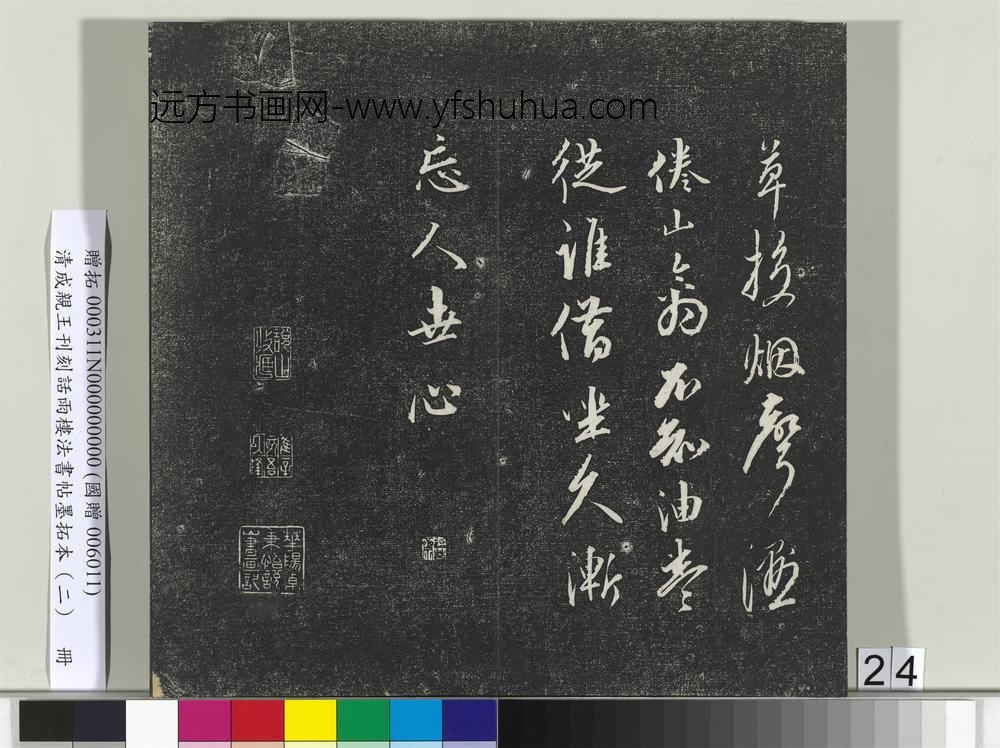 远方书画网-www.yfshuhua.com
草 烟
倦山翁不知油
從誰借坐久漸
忘人世心
贈拓 000311N000000000 (國贈 006011)
清成親王刊刻話雨樓法書帖墨拓本(二) 冊
24